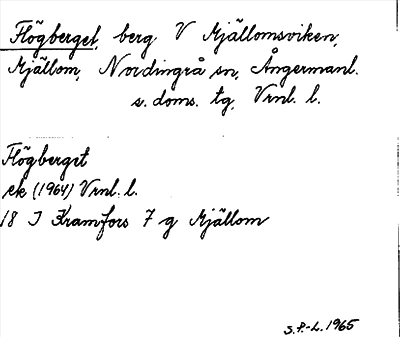 Flögberget, berg V Mjällomsviken,
Mjällom, Nordingrå sn, Ångermanl.
s. doms. tg, Vrnl. l.
Flögberget
ek (1964) Vrnl. l.
18 J Kramfors 7 g Mjällom
S.P.-L. 1965